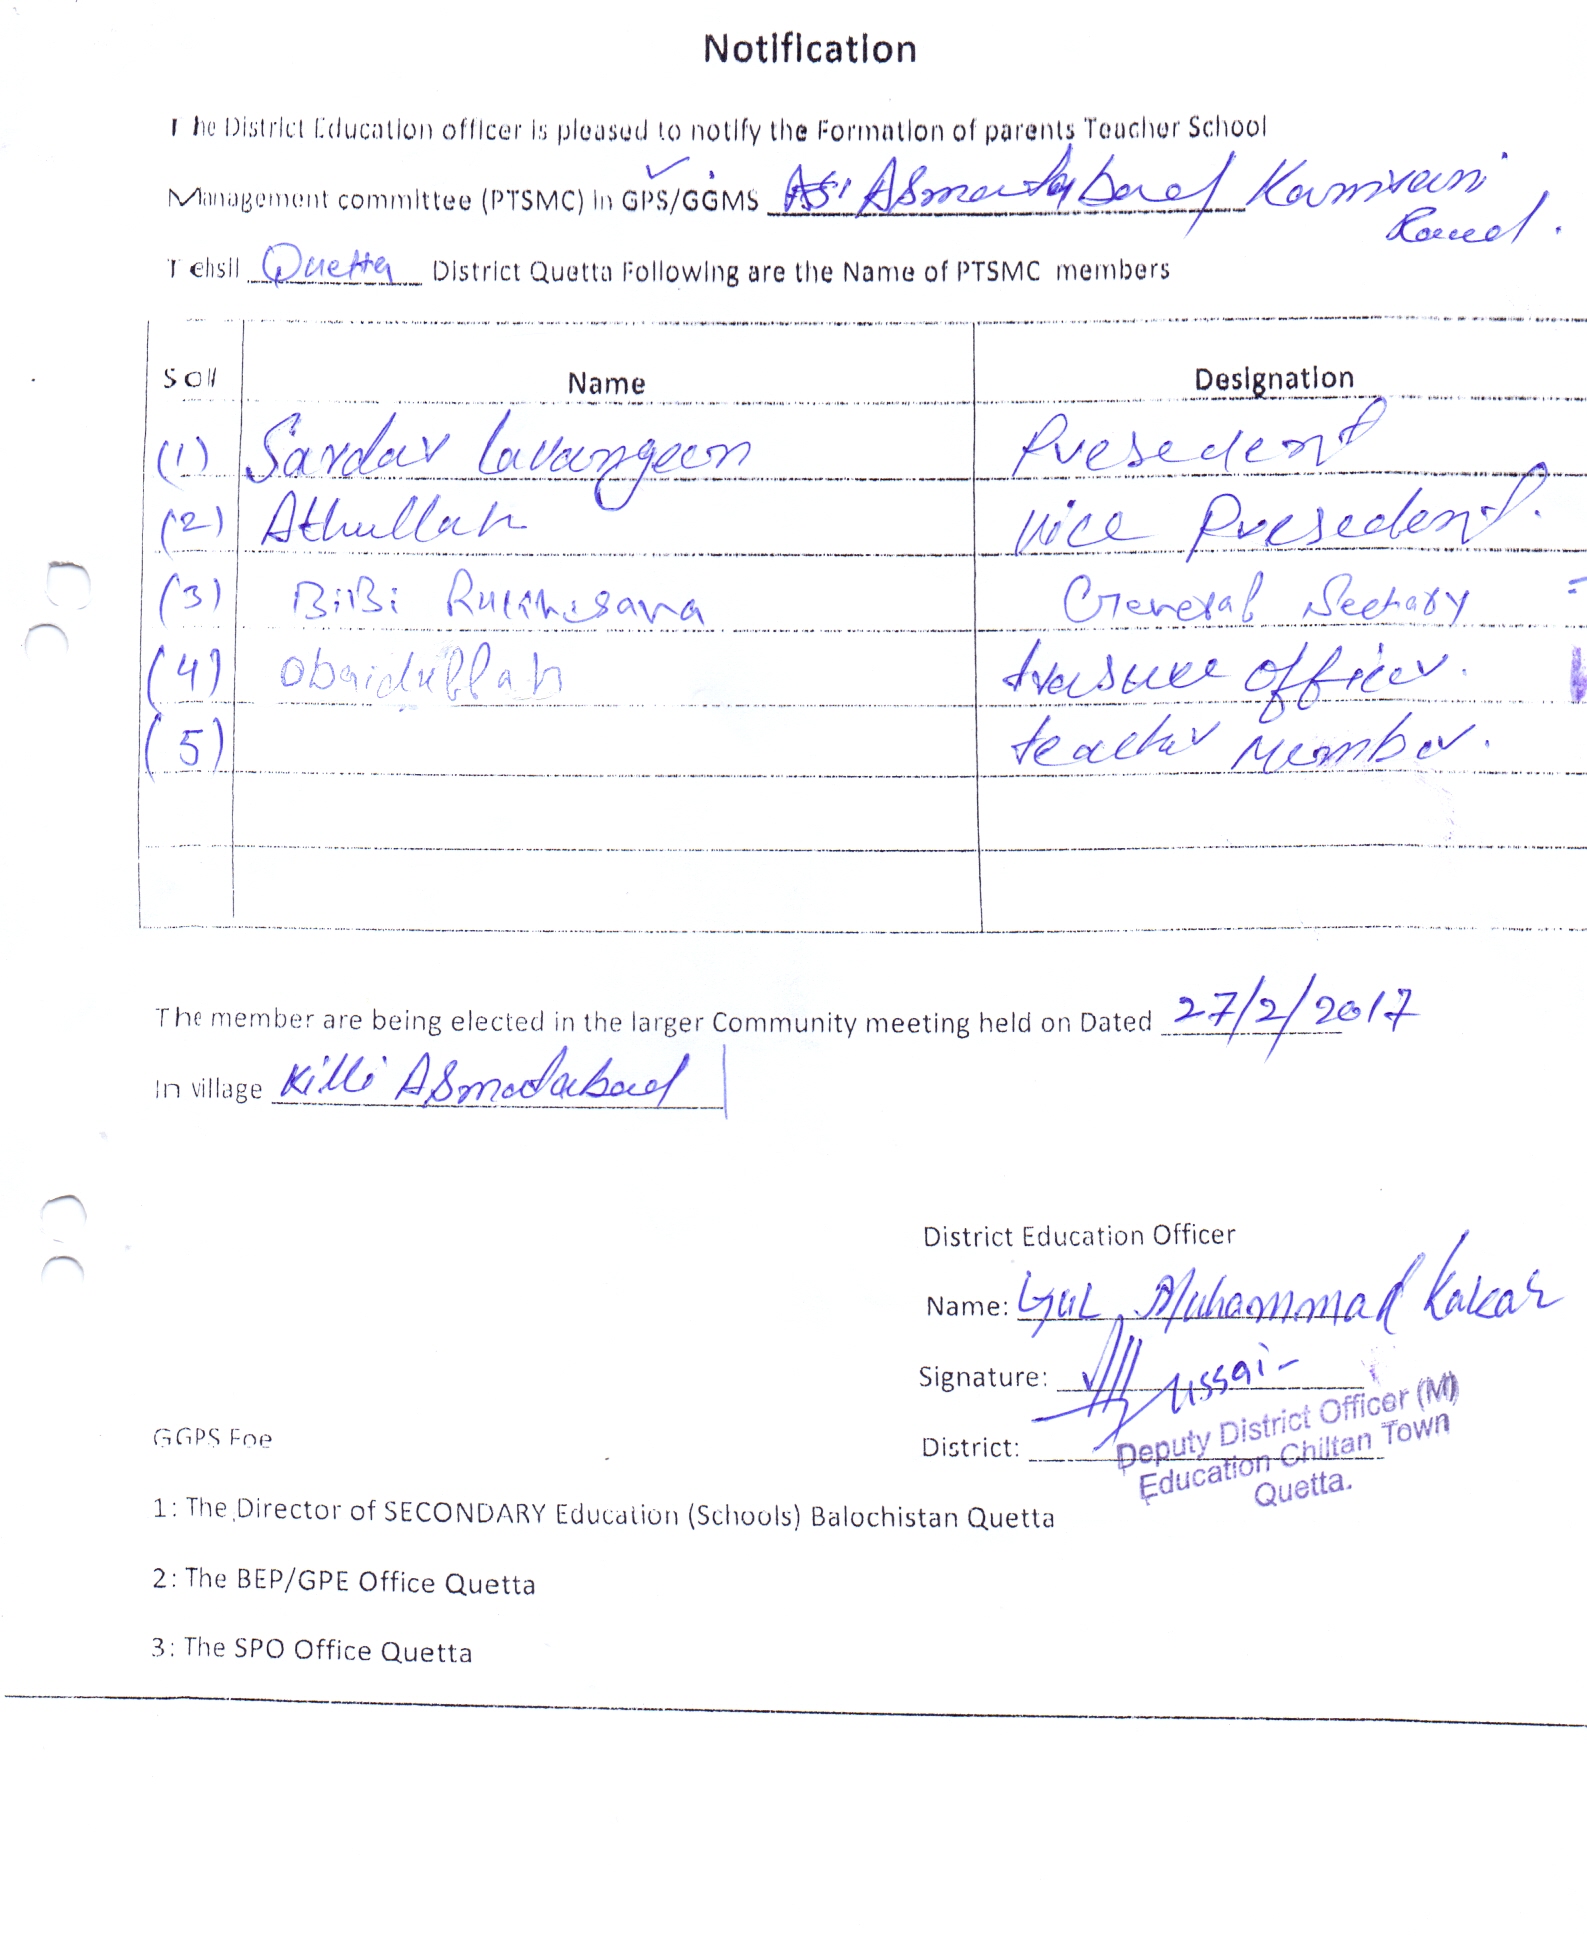 Notification
The District Education officer is pleased to notify the Formation of parents Teacher School
Management committee (PTSMC) in GPS/GGMS Asmatabad Kamirani
Road.
Tehsil Quetta District Quetta Following are the Name of PTSMC members
S o# Name Designation
(1) Sardar Lavangeen Presedent
(2) Athullah vice Presedent.
(3) BiBi Rukhsana General Sectary
(4) Obaidullah trasure officer.
(5) teacher Member.
The member are being elected in the larger Community meeting held on Dated 27/2/2017
In village Killi Asmatabad
District Education Officer
Name: Gul Muhammad Kakar
Signature: 
District:
Deputy District Officer (M)
Education Chiltan Town
Quetta.
GGPS Foe
1: The Director of SECONDARY Education (Schools) Balochistan Quetta
2: The BEP/GPE Office Quetta
3: The SPO Office Quetta